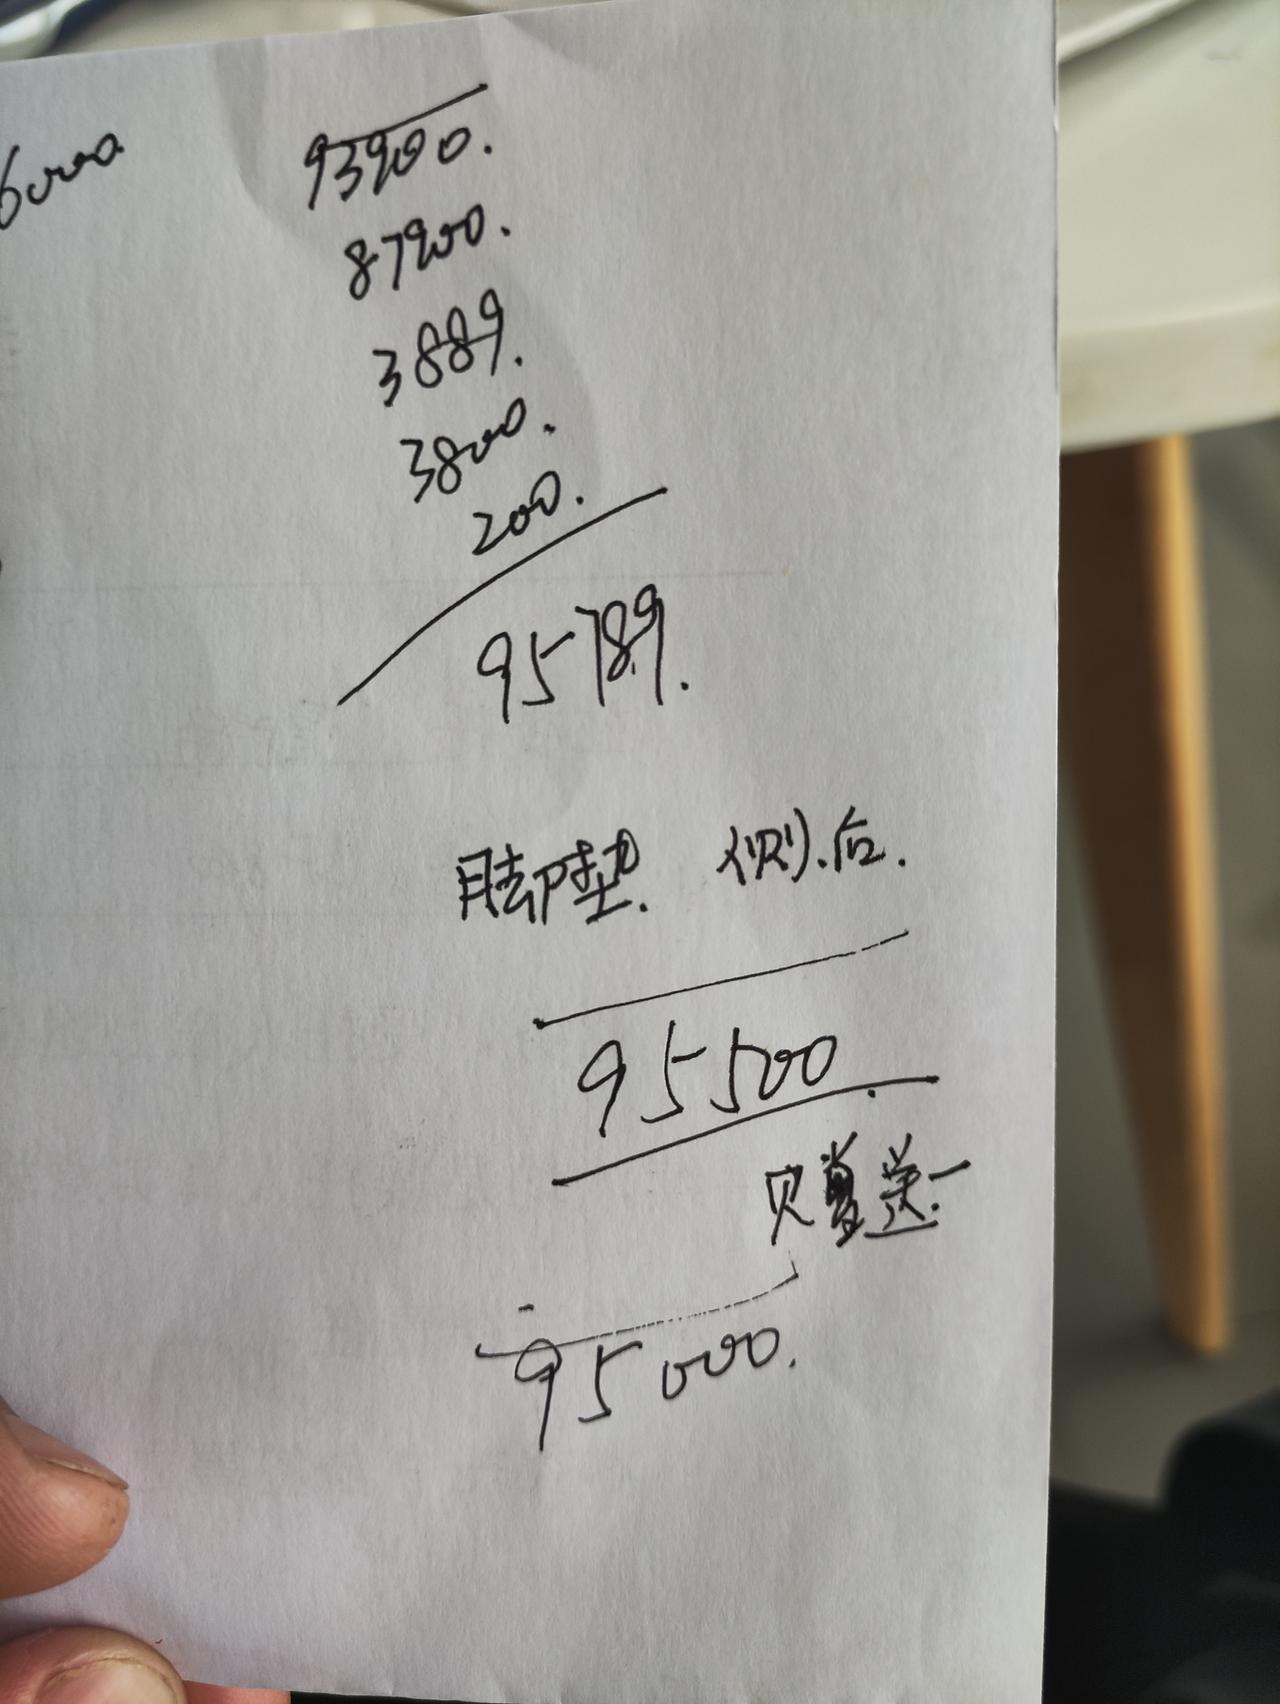 6000
93900.
87900.
3889.
3800.
200.
95789.
脚垫. 侧.后.
95500.
赠送
95000.